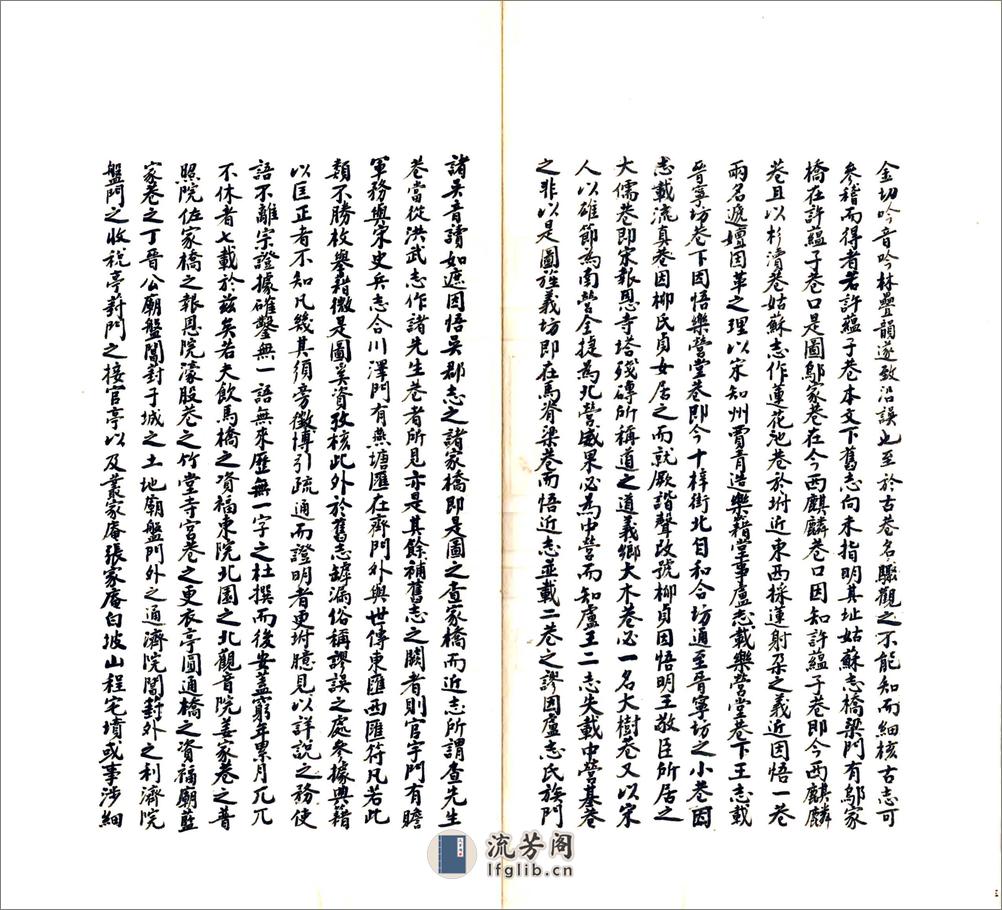 金切吟音吟林疊韻遂致沿誤也至於古巷名驟觀之不能知而細核古志可
參稽而得者若許蘊子巷本文下舊志向未指明其址姑蘇志橋梁門有鄔家
橋在許蘊子巷口是圖鄔家巷在今西麒麟巷口因知許蘊子巷即今西麒麟
巷且以杉瀆巷姑蘇志作蓮花池巷於坿近東西採蓮射朶之義近因悟一巷
兩名遞嬗因革之理以宋知州賈青造樂籍堂事盧志載樂營堂巷下王志載
晉寧坊巷下因悟樂營堂巷即今十梓街北自和合坊通至晉寧坊之小巷因
志載流真巷因柳氏貞女居之而就厥諧聲改號柳貞因悟明王敬臣所居之
大儒巷即宋報恩寺塔殘磚所稱道之道義鄉大木巷必一名大樹巷又以宋
人以雄節為南營全捷為北營威果必為中營而知盧王二志失載中營基巷
之非以是圖旌義坊即在馬脊梁巷而悟近志並載二巷之謬因盧志氏族門
諸吳音讀如遮因悟吳郡志之諸家橋即是圖之查家橋而近志所謂查先生
巷當從洪武志作諸先生巷者所見亦是其餘補舊志之闕者則官字門有贍
軍務與宋史兵志合川澤門有無塘匯在齊門外與世傳東匯西匯符凡若此
類不勝枚舉藉徵是圖奚資攷核此外於舊志罅漏俗稱謬誤之處參據典籍
以匡正者不知凡幾其須旁徵博引疏通而證明者更坿臆見以詳說之務使
語不離宗證據確鑿無一語無來歷無一字之杜撰而後安蓋窮年累月兀兀
不休者七載於茲矣若夫飲馬橋之資福東院北園之北觀音院姜家巷之普
照院佐家橋之報恩院濠股巷之竹堂寺宮巷之更衣亭圓通橋之資福廟藍
家巷之丁晉公廟盤閶葑于城之土地廟盤門外之通濟院閶葑外之利濟院
盤門之收税亭葑門之接官亭以及叢家庵張家庵白坡山程宅墳或事涉細
流芳阁
lfglib.cn